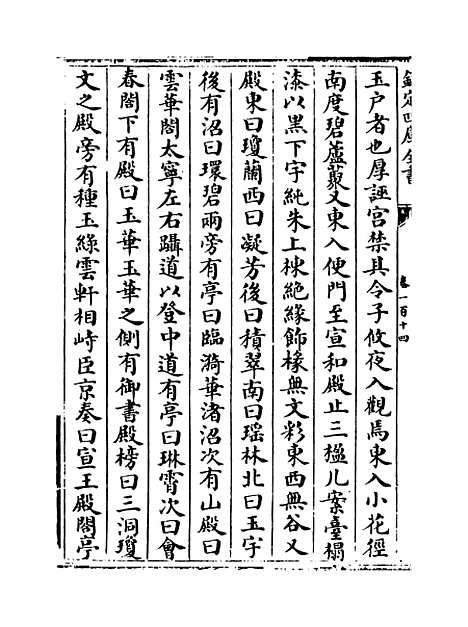 欽定四庫全書
卷一百十四
玉户者也厚誣宫禁其令子攸夜入觀焉東入小花徑
南度碧蘆叢又東入便門至宣和殿止三楹几案臺榻
漆以黑下宇純朱上棟絶緣飾椽無文彩東西無谷又
殿東曰瓊蘭西曰凝芳後曰積翠南曰瑶林北曰玉宇
後有沼曰環碧兩旁有亭曰臨漪華渚沼次有山殿曰
雲華閣太寧左右躡道以登中道有亭曰琳霄次曰會
春閣下有殿曰玉華玉華之側有御書殿榜曰三洞瓊
文之殿旁有種玉緣雲軒相峙臣京奏曰宣王殿閣亭